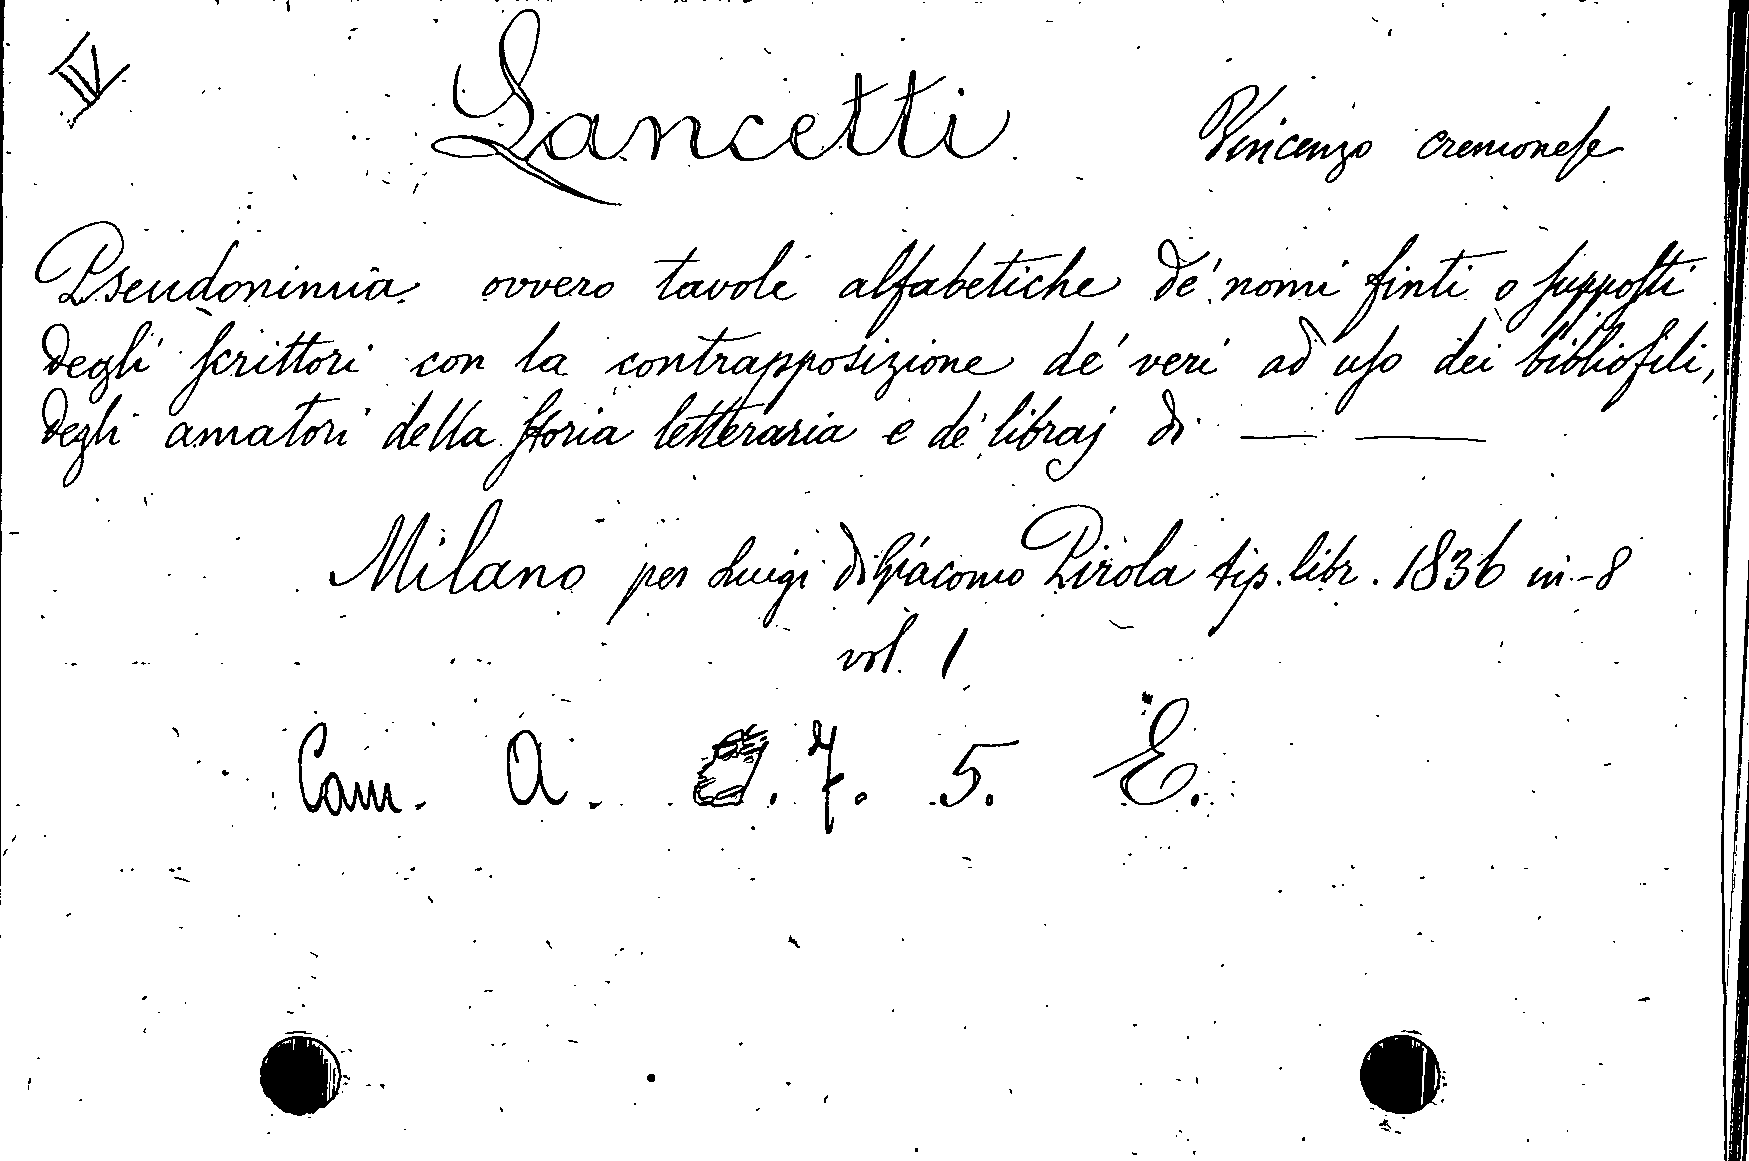 IV
Lancetti Vincenzo cremoneſe
Pseudonimia ovvero tavole alfabetiche de' nomi finti o ſuppoſti
degli ſcrittori con la contrapposizione de' veri ad uſo dei bibliofili,
degli amatori della ſtoria letteraria e de' libraj di — —
Milano per Luigi di Giacomo Pirola tip. libr. 1836 in-8
vol. 1
Cam. A. 7. 5. E.